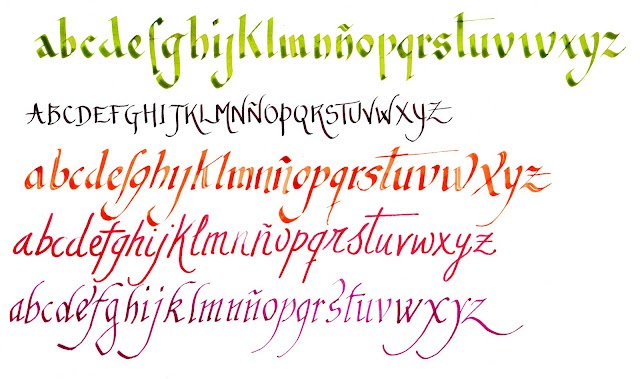 abcdefghijklmnñopqrstuvwxyz
ABCDEFGHIJKLMNÑOPQRSTUVWXYZ
abcdefghijklmnñopqrstuvwxyz
abcdefghijklmnñopqrstuvwxyz
abcdefghijklmnñopqrstuvwxyz